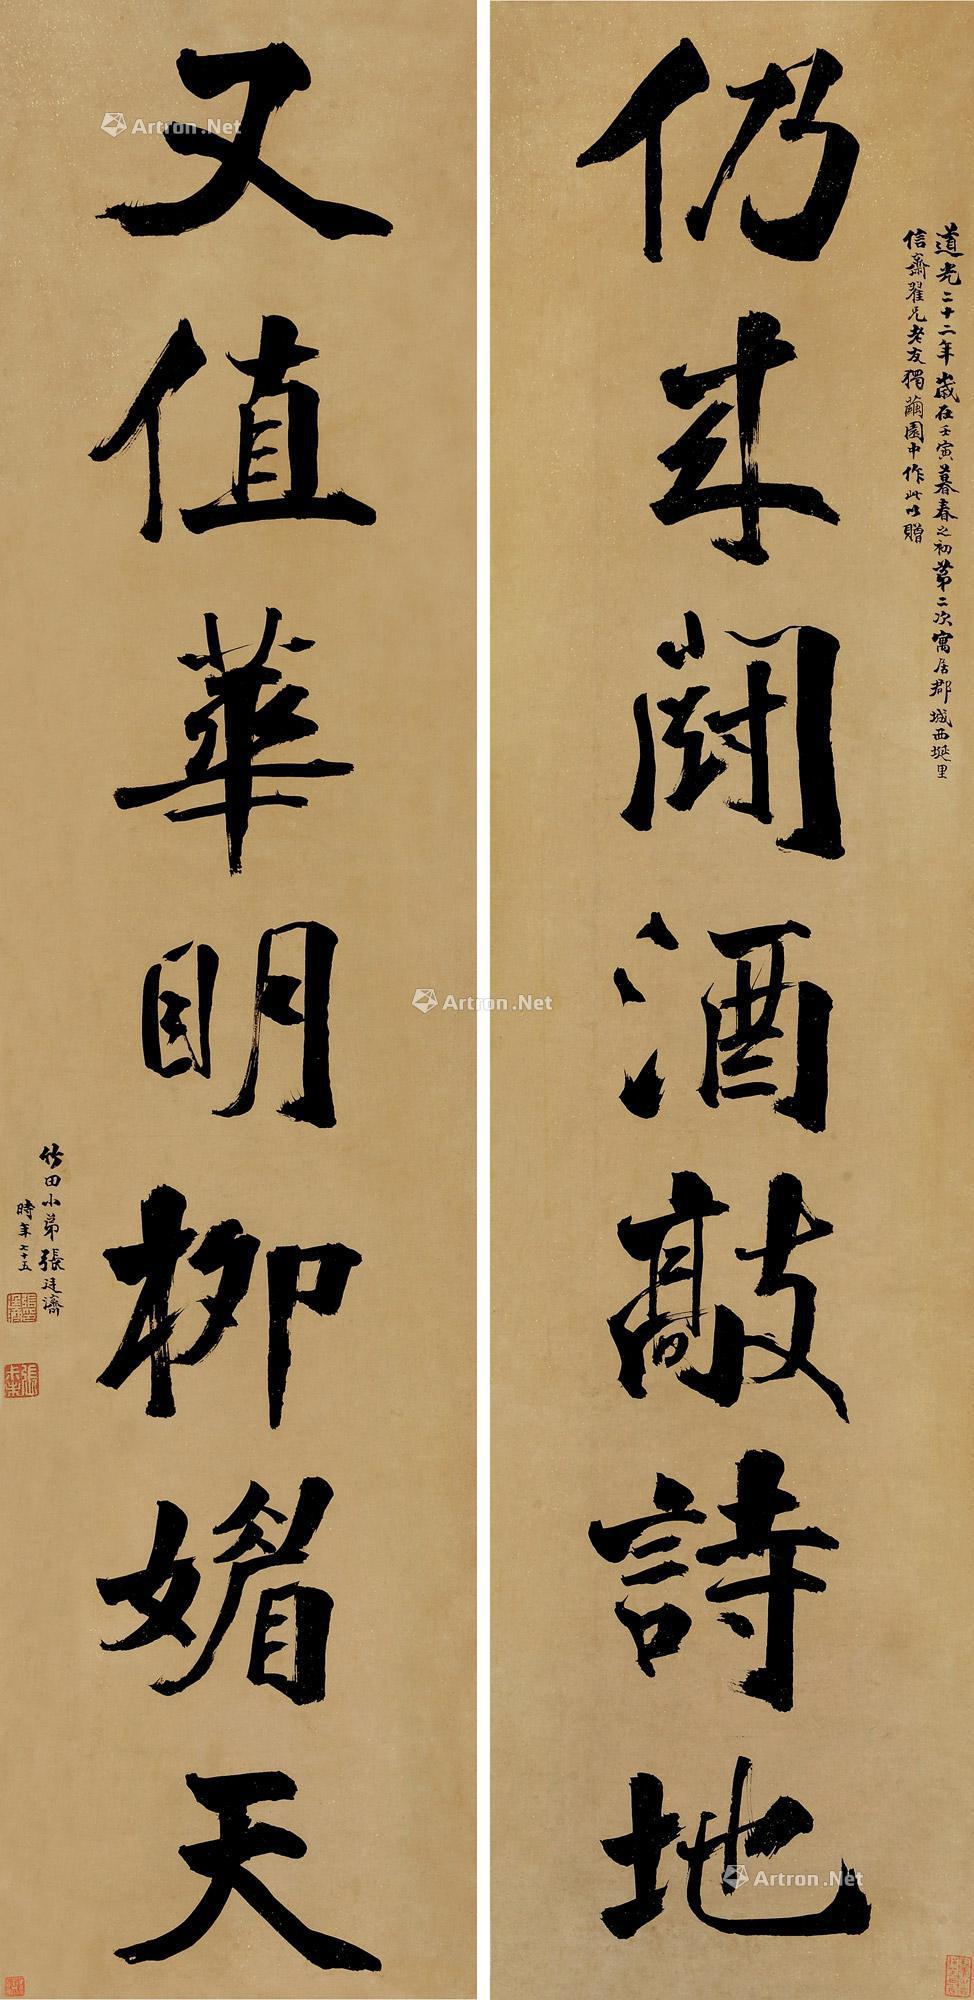 仍来鬪酒敲詩地
道光二十二年歲在壬寅暮春之初第二次寓居郡城西埏里
信齋翟兄老友獨繭園中作此以贈
又值華明柳媚天
竹田小弟張廷濟
時年七十五
Artron.Net
Artron.Net
Artron.Net